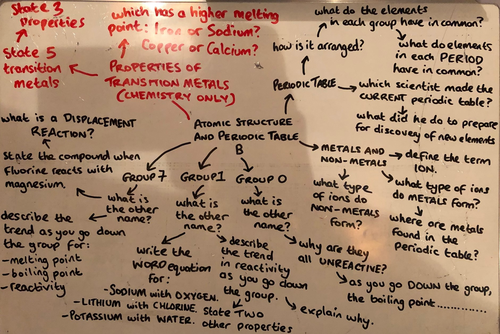 State 3
properties
State 5
transition
metals
which has a higher melting
point: Iron or Sodium?
Copper or Calcium?
PROPERTIES OF
TRANSITION METALS
(CHEMISTRY ONLY)
ATOMIC STRUCTURE
AND PERIODIC TABLE
B
PERIODIC TABLE
how is it arranged?
what do the elements
in each group have in common?
what do elements
in each PERIOD
have in common?
which scientist made the
CURRENT periodic table?
what did he do to prepare
for discovery of new elements
METALS AND
NON-METALS
define the term
ION.
what type
of ions do
NON-METALS
form?
what type of ions
do METALS form?
where are metals
found in the
periodic table?
GROUP 7
what is
the other
name?
what is a DISPLACEMENT
REACTION?
State the compound when
fluorine reacts with
magnesium.
describe the
trend as you go down
the group for:
-melting point
-boiling point
-reactivity
GROUP 1
what is
the other
name?
write the
WORD equation
for:
-SODIUM with OXYGEN.
-LITHIUM with CHLORINE.
-POTASSIUM with WATER.
describe
the trend
in reactivity
as you go down
the group.
explain why.
State TWO
other properties
GROUP 0
what is
the other
name?
why are they
all UNREACTIVE?
as you go DOWN the group,
the boiling point..............